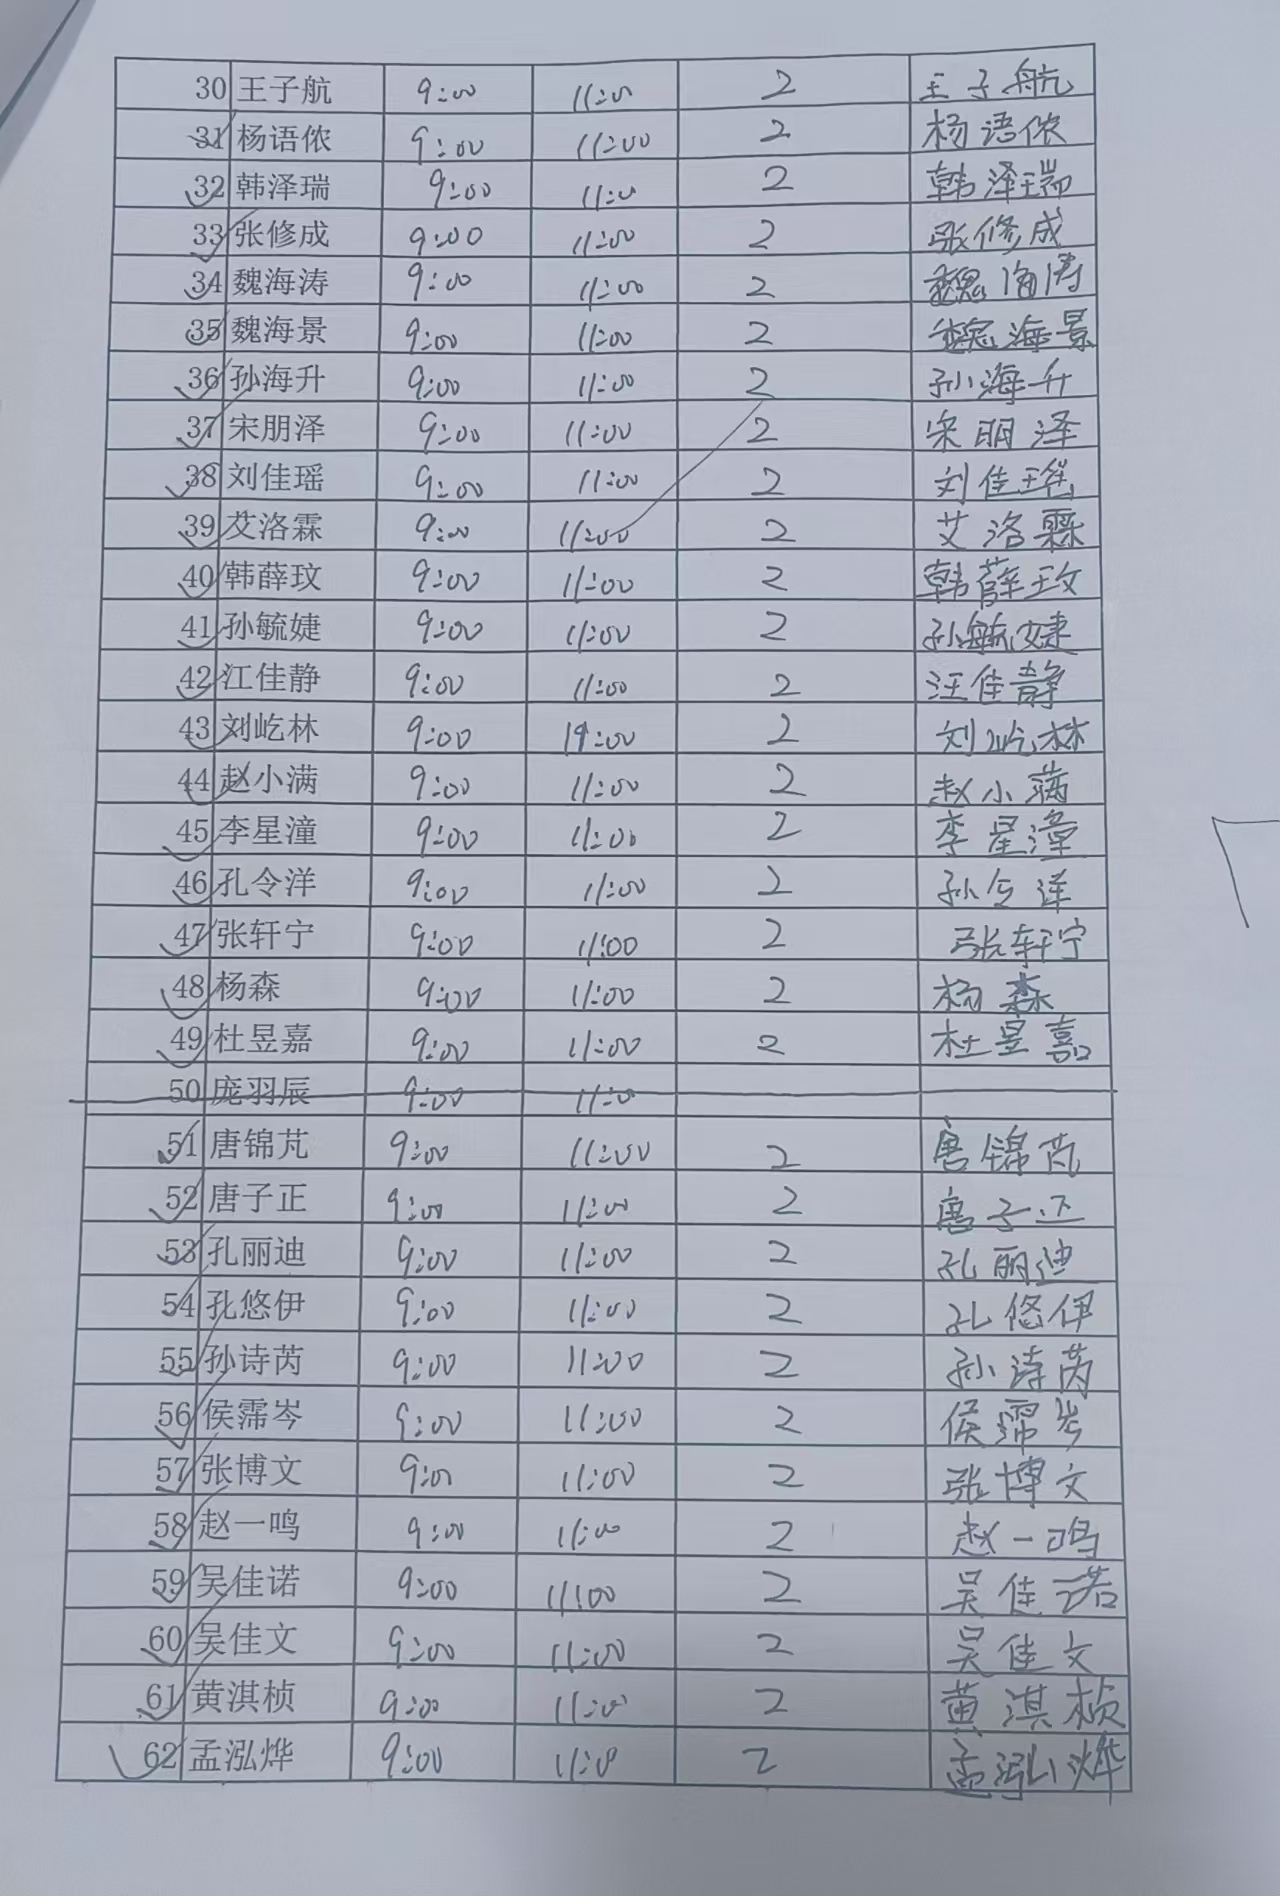 30 王子航 9:00 11:00 2 王子航
31 杨语侬 9:00 11:00 2 杨语侬
32 韩泽瑞 9:00 11:00 2 韩泽瑞
33 张修成 9:00 11:00 2 张修成
34 魏海涛 9:00 11:00 2 魏海涛
35 魏海景 9:00 11:00 2 魏海景
36 孙海升 9:00 11:00 2 孙海升
37 宋朋泽 9:00 11:00 2 宋朋泽
38 刘佳瑶 9:00 11:00 2 刘佳瑶
39 艾洛霖 9:00 11:00 2 艾洛霖
40 韩薛玟 9:00 11:00 2 韩薛玟
41 孙毓婕 9:00 11:00 2 孙毓婕
42 江佳静 9:00 11:00 2 汪佳静
43 刘屹林 9:00 11:00 2 刘屹林
44 赵小满 9:00 11:00 2 赵小满
45 李星潼 9:00 11:00 2 李星潼
46 孔令洋 9:00 11:00 2 孙令洋
47 张轩宁 9:00 11:00 2 张轩宁
48 杨森 9:00 11:00 2 杨森
49 杜昱嘉 9:00 11:00 2 杜昱嘉
50 庞羽辰 9:00 11:00
51 唐锦芃 9:00 11:00 2 唐锦芃
52 唐子正 9:00 11:00 2 唐子正
53 孔丽迪 9:00 11:00 2 孔丽迪
54 孔悠伊 9:00 11:00 2 孔悠伊
55 孙诗芮 9:00 11:00 2 孙诗芮
56 侯霈岑 9:00 11:00 2 侯霈岑
57 张博文 9:00 11:00 2 张博文
58 赵一鸣 9:00 11:00 2 赵一鸣
59 吴佳诺 9:00 11:00 2 吴佳诺
60 吴佳文 9:00 11:00 2 吴佳文
61 黄淇桢 9:00 11:00 2 黄淇桢
62 孟泓烨 9:00 11:00 2 孟泓烨